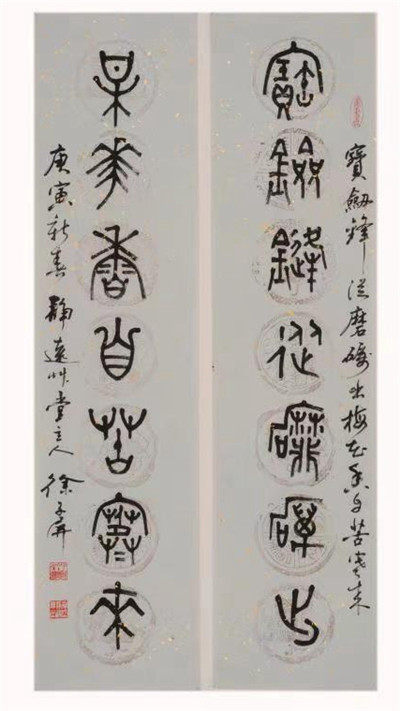 寶劔鋒從磨礪出梅花香自苦寒來
寶劍鋒從磨礪出
梅花香自苦寒來
庚寅新春靜遠艸堂主人徐